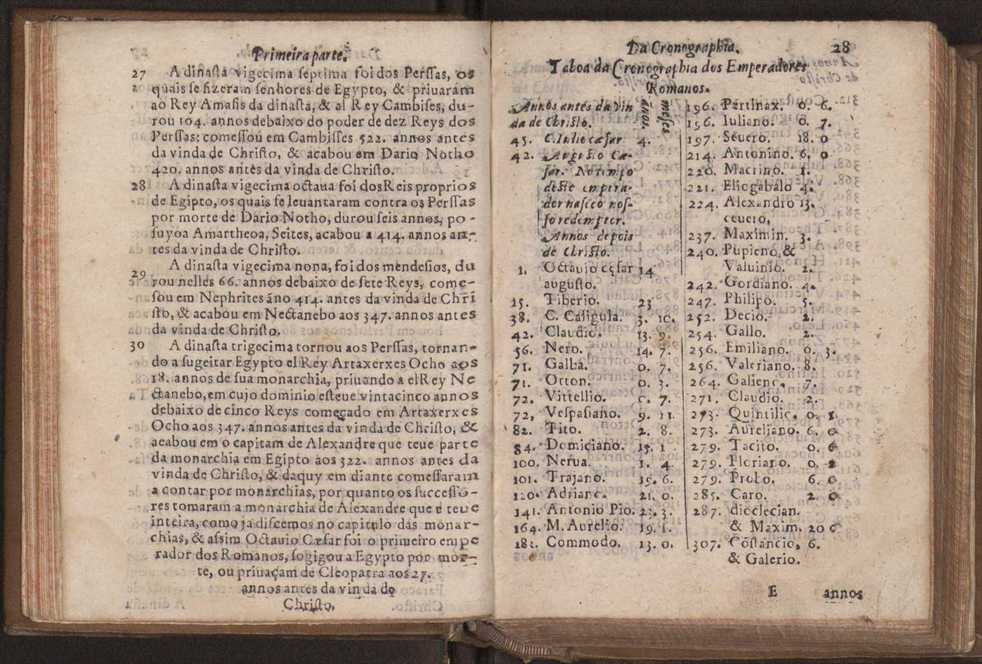 Primeira parte.
27 A dinasta vigecima septima foi dos Perssas, os
quais se fizeram senhores de Egypto, & priuaram
ao Rey Amasis da dinasta, & al Rey Cambises, du-
rou 104. annos debaixo do poder de dez Reys dos
Perssas: comessou em Cambisses 522. annos antes
da vinda de Christo, & acabou em Dario Notho
420. annos antes da vinda de Christo.
28 A dinasta vigecima octaua foi dos Reis proprios
de Egipto, os quais se leuantaram contra os Perssas
por morte de Dario Notho, durou seis annos, po-
suyoa Amartheoa, Seites, acabou a 414. annos an-
tes da vinda de Christo.
29 A dinasta vigecima nona, foi dos mendesios, du
rou nelles 66. annos debaixo de sete Reys, come-
sou em Nephrites ãno 414. antes da vinda de Chri
sto, & acabou em Nectanebo aos 347. annos antes
da vinda de Christo.
30 A dinasta trigecima tornou aos Perssas, tornan-
do a sugeitar Egypto el Rey Artaxerxes Ocho aos
18. annos de sua monarchia, priuando a el Rey Ne
ctanebo, em cujo dominio esteue vinta cinco annos
debaixo de cinco Reys começado em Artaxerxes
Ocho aos 347. annos antes da vinda de Christo, &
acabou em o capitam de Alexandre que teue parte
da monarchia em Egipto aos 322. annos antes da
vinda de Christo, & daquy em diante comessaram
a contar por monarchias, por quanto os successo-
res tomaram a monarchia de Alexandre que e teue
inteira, como ja discemos no capitulo das monar-
chias, & assim Octauio Cæsar foi o primeiro empe
rador dos Romanos, sogigou a Egypto por mor-
te, ou priuaçam de Cleopatra aos 27.
annos antes da vinda de
Christo.
Da Cronographia. 28
Taboa da Cronographia dos Emperadores
Romanos.
Annos antes da vin
da de Christo.
annos. meses
45. C. Iulio cæsar 4.
42. Augusto Cæ-
sar. No tempo
deste empera-
dor nasceo nos-
so redemptor.
Annos depois
de Christo.
1. Octauio cesar 14
augusto.
15. Tiberio. 23
38. C. Caligula. 3. 10.
42. Claudio. 13. 9.
56. Nero. 14. 7.
71. Galba. 0. 7.
71. Otton. 0. 3.
72. Vittellio. 0. 7.
72. Vespasiano. 9. 11.
82. Tito. 2. 8.
84. Domiciano. 15. 1
100. Nerua. 1. 4
101. Trajano. 19. 6.
120. Adriano. 21. 0.
141. Antonio Pio. 22. 3.
164. M. Aurelio. 19. 1.
182. Commodo. 13. 0.
196. Partinax. 0. 6.
196. Iuliano. 0. 7.
197. Seuero. 18. 0
214. Antonino. 6. 0
220. Macrino. 1.
221. Eliogabalo 4.
224. Alexandro 13.
ceuero.
237. Maximin. 3.
240. Pupieno, &
Valuinio. 2.
242. Gordiano. 4.
247. Philipo. 5.
252. Decio. 2.
254. Gallo. 2.
256. Emiliano. 0. 3.
256. Valeriano. 8.
264. Galieno. 7.
271. Claudio. 2.
273. Quintilio. 0. 1
273. Aureliano. 6. 0
279. Tacito. 0. 6
279. Floriano. 0. 2
279. Probo. 6. 0
285. Caro. 2. 0
287. dioclecian.
& Maxim. 20 0
307. Cõstancio, 6.
& Galerio.
E annos